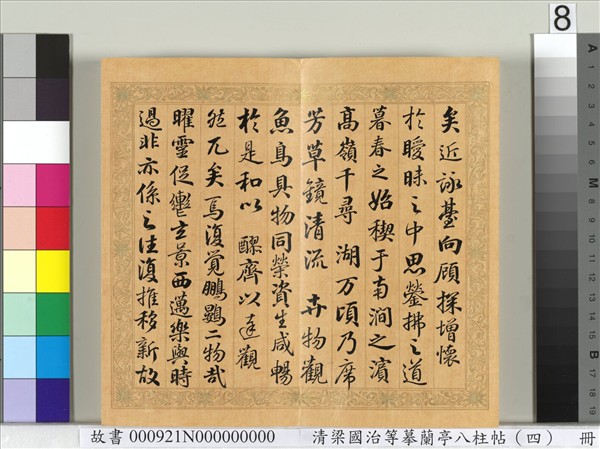 矣近詠臺向顧探增懷
於曖昧之中思鎣拂之道
暮春之始禊于南澗之濱
高嶺千尋 湖万頃乃席
芳草鏡清流 卉物觀
魚鳥具物同榮資生咸暢
於是和以 醪齊以達觀
然兀矣焉復覺鵬鷃二物哉
曜靈促轡玄景西邁樂與時
過非亦係之往復推移新故
8
A 1 2 3 4 5 6 M 8 9 10 11 12 13 14 15 B 17 18 19
故書 000921N000000000 清梁國治等摹蘭亭八柱帖（四） 冊